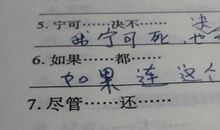 5. 宁可……决不……
我宁可死，决
6. 如果……都……
如果连这个
7. 尽管……还……